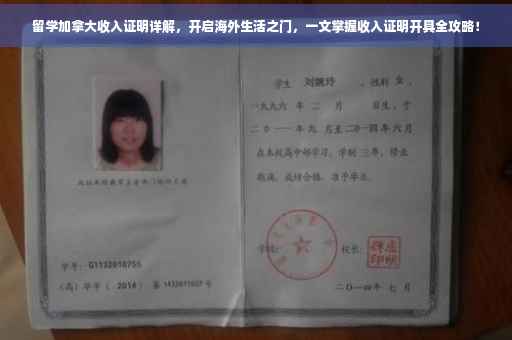 留学加拿大收入证明详解，开启海外生活之门，一文掌握收入证明开具全攻略！
学生 刘婉玲 ，性别 女 ，
一九九六 年 二 月 日生，于
二〇一一 年 九 月至 二〇一四 年 六 月
在本校高中部学习，学制 三 年，修业
期满，成绩合格，准予毕业。
学号：G1132010755
学校： 校长：
（高）毕字（ 2014 ）第 1432011607 号
二〇一四年 七 月